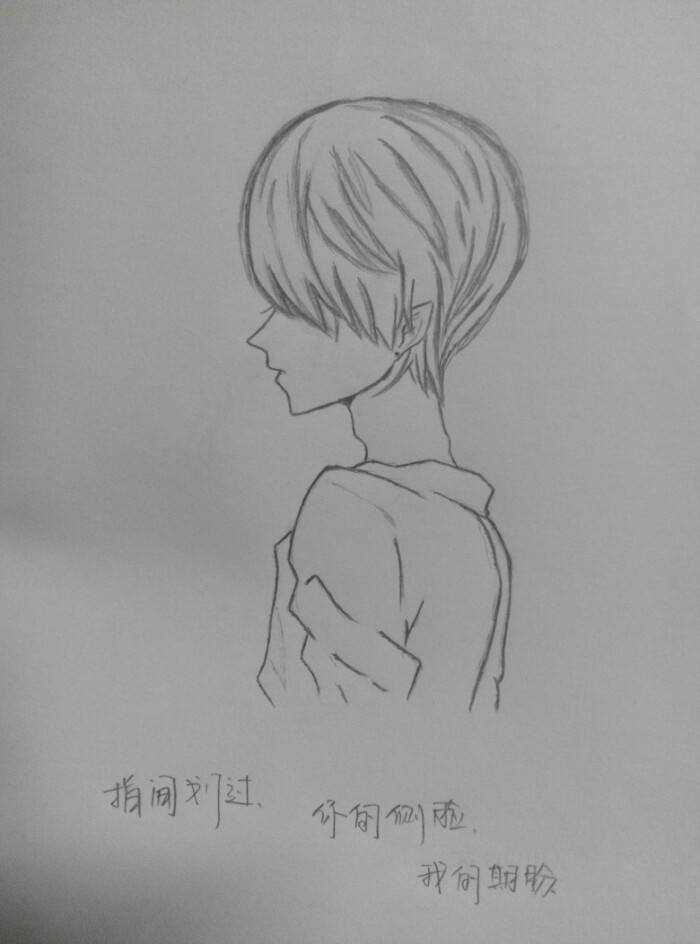 指间划过、
你的侧脸、
我的期盼